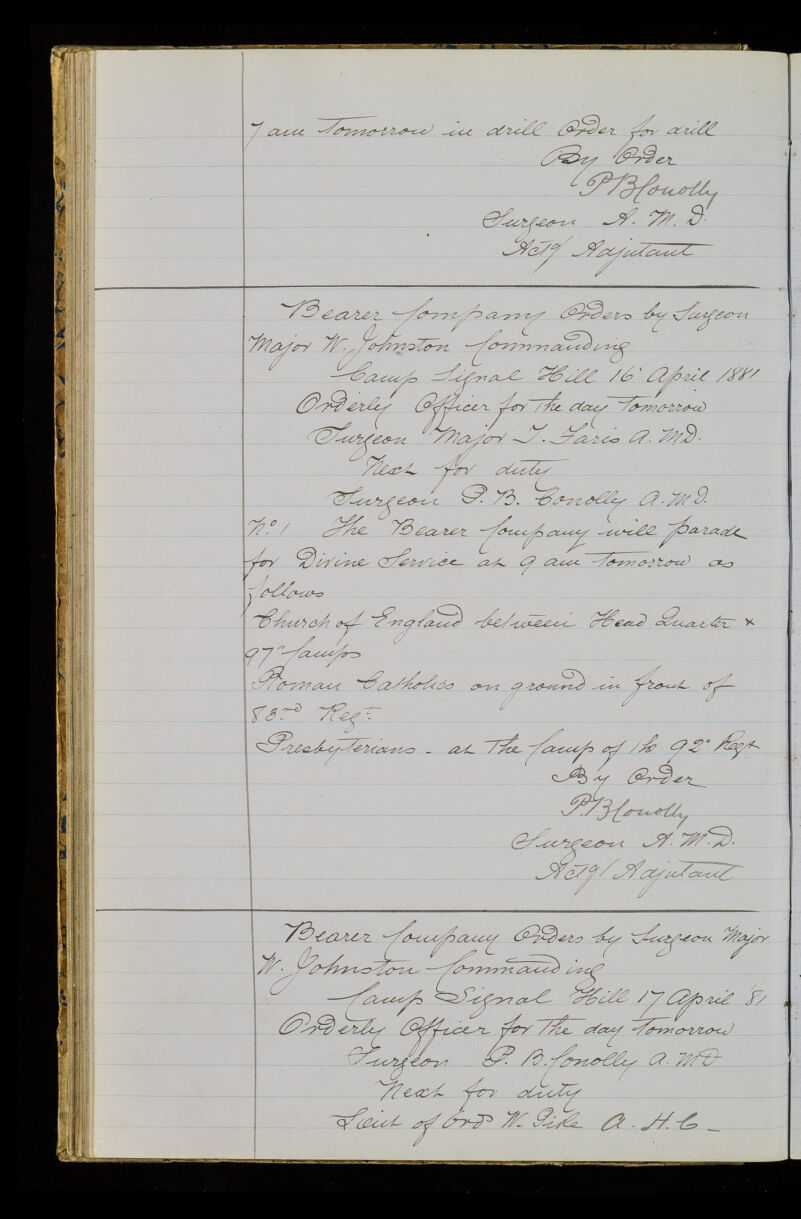 7 am tomorrow in drill Order for drill
By Order
P B Conolly
Surgeon A. M. D.
Actg/ Adjutant
Bearer Company Orders by Surgeon
Major W. Johnston Commanding
Camp Signal Hill 16 April 1881
Orderly Officer for the day tomorrow
Surgeon Major T. Faris A. M D.
Next for duty
Surgeon P. B. Conolly A. M D.
No. 1 The Bearer Company will parade
for Divine Service at 9 am tomorrow as
follows
Church of England between Head Quarter &
97" Camps
Roman Catholics on ground in front of
83rd Regt.
Presbyterians - at the Camp of the 92" Regt
By Order
P. B Conolly
Surgeon A. M. D.
Actg/ Adjutant
Bearer Company Orders by Surgeon Major
W. Johnston Commanding
Camp Signal Hill 17 April '81
Orderly Officer for the day tomorrow
Surgeon P. B. Conolly A. M D
Next for duty
Lieut of Ords W. Pike A. H. C -